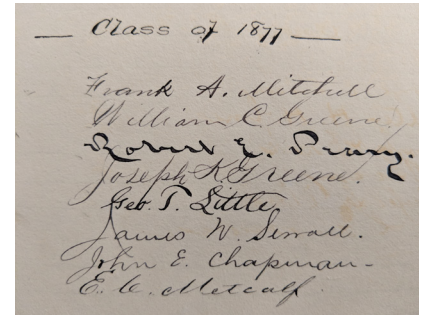 — Class of 1877 —
Frank A. Mitchell
William C. Greene.
Robert E. Peary.
Joseph K. Greene.
Geo. T. Little,
James W. Sewall.
John E. Chapman—
E. C. Metcalf.